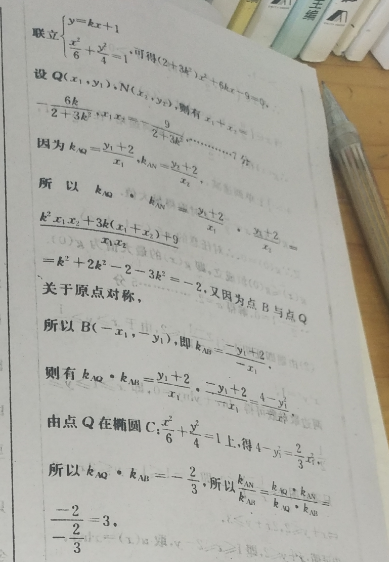 联立{y=kx+1, x²/6+y²/4=1, 可得(2+3k²)x²+6kx-9=0,
设 Q(x₁,y₁),N(x₂,y₂),则有 x₁+x₂=
-6k/(2+3k²),x₁x₂=-9/(2+3k²),…………7分
因为 k_AQ=(y₁+2)/x₁,k_AN=(y₂+2)/x₂,
所以 k_AQ·k_AN=(y₁+2)/x₁·(y₂+2)/x₂=
(k²x₁x₂+3k(x₁+x₂)+9)/(x₁x₂)
=k²+2k²-2-3k²=-2,又因为点 B 与点 Q
关于原点对称,
所以 B(-x₁,-y₁),即 k_AB=(-y₁+2)/(-x₁),
则有 k_AQ·k_AB=(y₁+2)/x₁·(-y₁+2)/(-x₁)=(4-y₁²)/(-x₁²),
由点 Q 在椭圆 C:x²/6+y²/4=1上,得 4-y₁²=(2/3)x₁²,
所以 k_AQ·k_AB=-2/3,所以 k_AN/k_AB=(k_AQ·k_AN)/(k_AQ·k_AB)=
-2/(-2/3)=3。